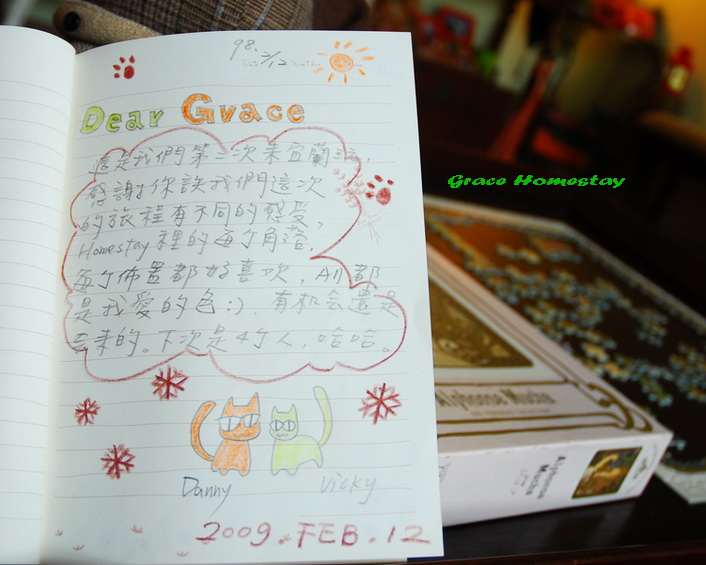 98. 2/12
Dear Grace
這是我們第二次來宜蘭玩,
感謝你讓我們這次
的旅程有不同的感受,
Homestay裡的每个角落,
每个佈置都好喜欢, All都
是我愛的色:). 有机会還是
会來的。下次是4个人, 哈哈。
Danny
Vicky
2009. FEB. 12
Grace Homestay
Alphonse Mucha
Alphonse
Mucha